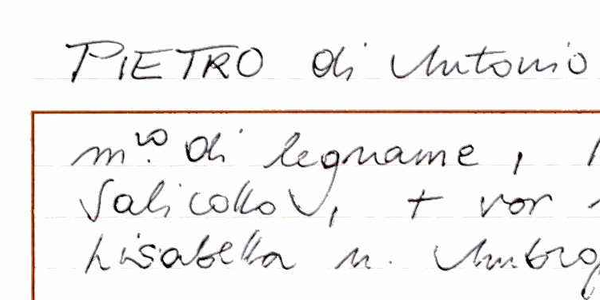 PIETRO di Antonio
m.ro di legname,
Salicollo, + vor
Lisabella n. Ambrog